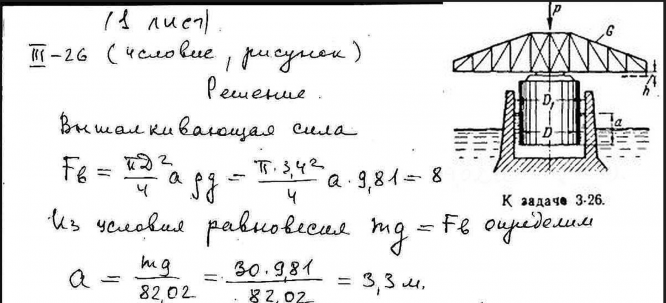 (1 лист).
III-26 (условие, рисунок)
Решение.
Выталкивающая сила
Fв = πD²/4 a ρg = π·3,4²/4 a·9,81 = 8
Из условия равновесия mg = Fв определим
a = mg/82,02 = 30·9,81/82,02 = 3,3 м.
P
G
h
D₁
a
D
К задаче 3-26.